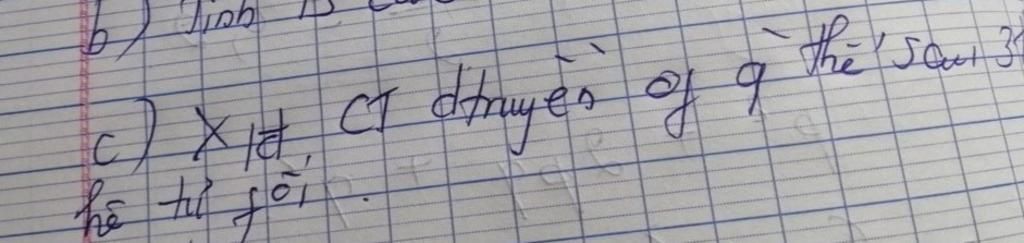 b) Tính
c) Xđ, CT dtruyền of q̀ thể sau 3
hệ tự fối.